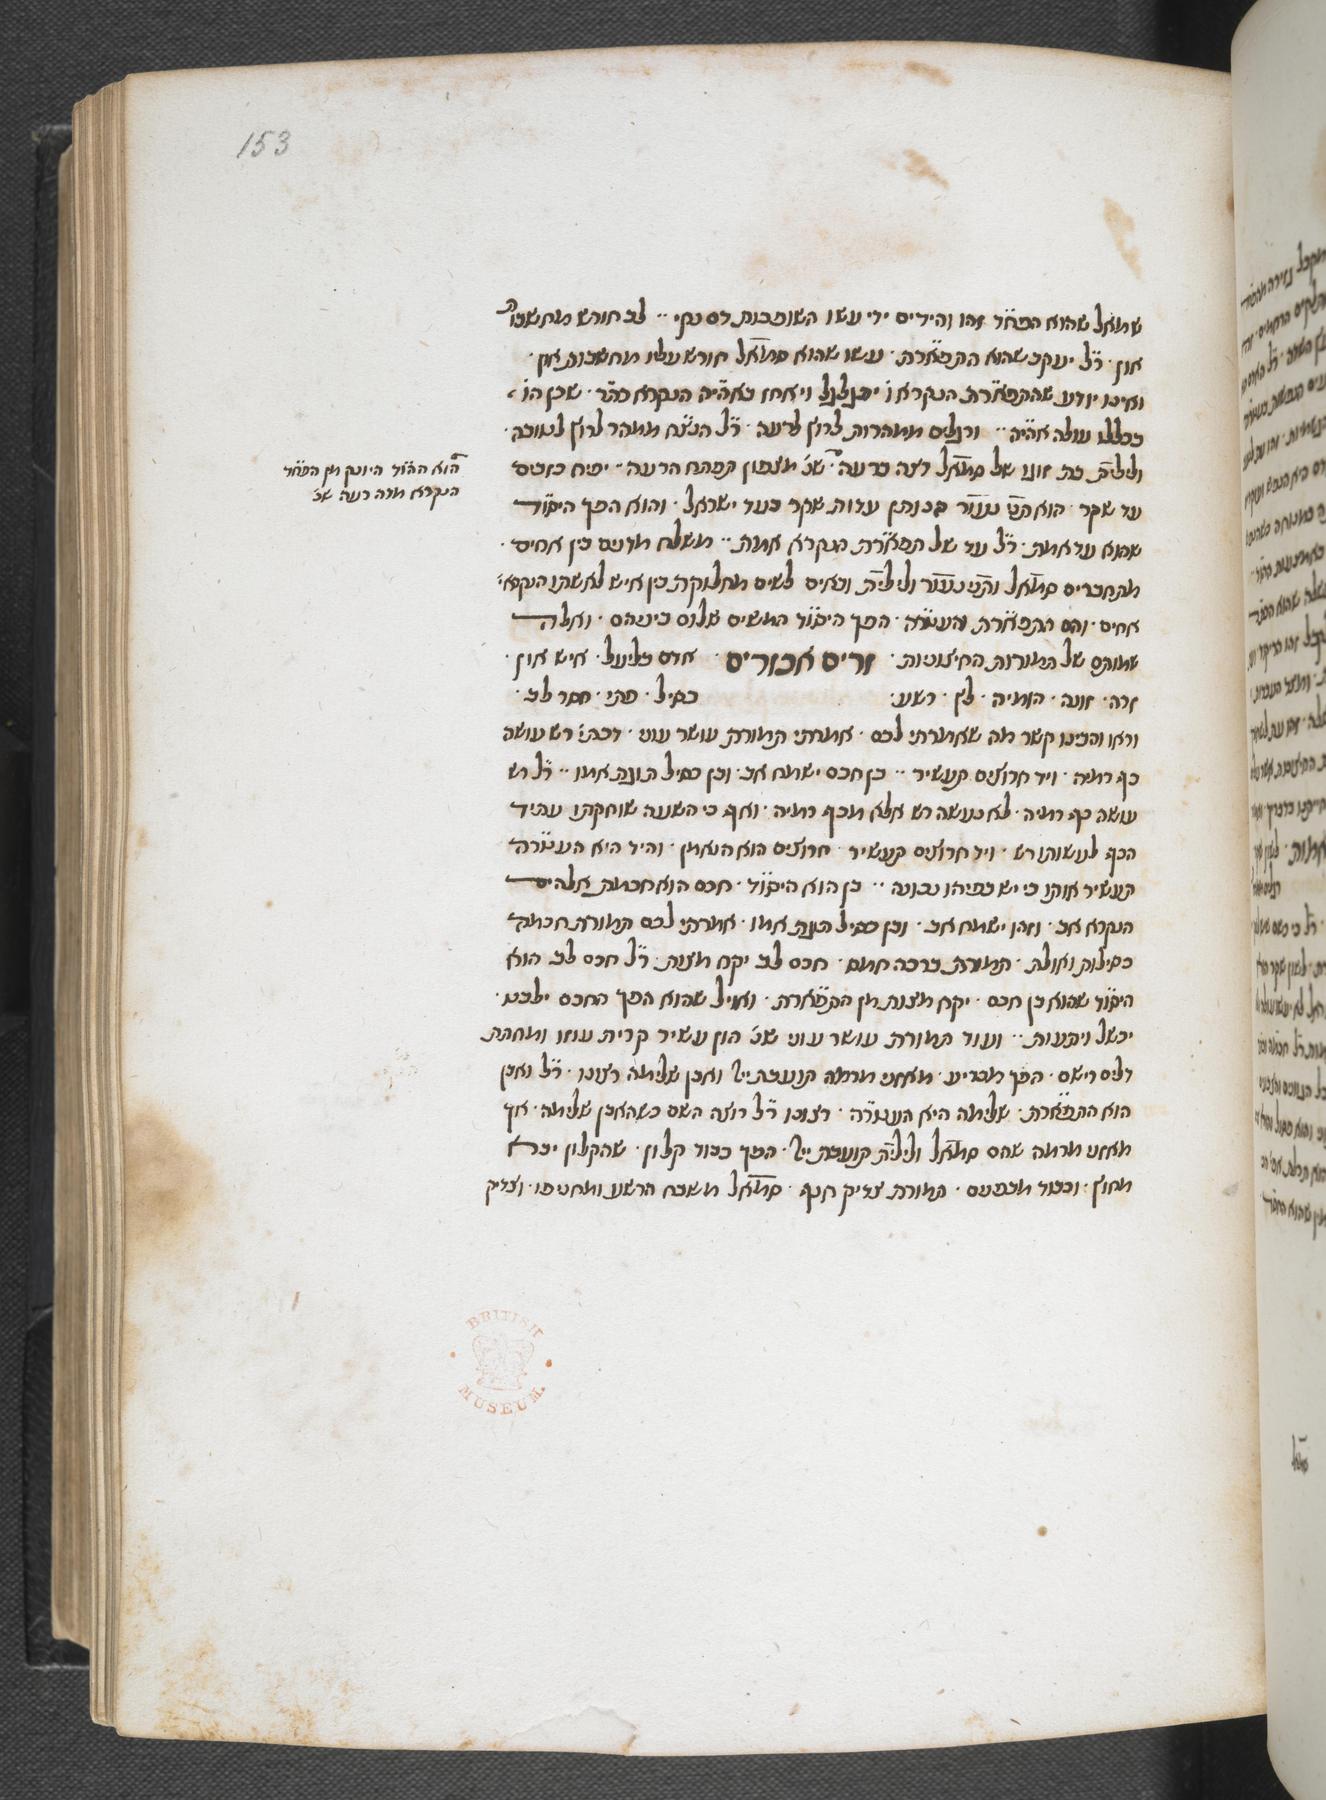 153
שמאל שהוא הפח̈ד זהו והידים ידי עשו השופכות דם נקי ·· לב חורש מחשבו׳
און · ר̈ל יעקב שהוא התפא̈רת · עשו שהוא סמ̅אל חורש עליו מחשבות און ·
ואינו יודע שהתפא̈רת הנקרא ו׳ יתגלגל ויאחז בא̈היה הנקרא כת̈ר · שכן הו׳
בכללו עולה אהיה ·· ורגלים ממהרות לרוץ לרעה · ר̈ל הנצ̈ח ממהר לרוץ לטובה ·
ולילי̅ת בת זוגו של סמ̅אל רצה ברעה · שנ׳ מצפון תפתח הרעה ·· יפיח כזבים
הוא ההו̈ד היונק מן הפח̈ד
הנקרא מדה רעה שנ׳
עד שקר · הוא בנותן עדות שקר כנגד ישראל · והוא הפך היסו̈ד
שהוא עד אמת · ר̈ל עד של תפא̈רת הנקרא אמת ·· משלח מדנים בין אחים ·
מתחברים סמ̅אל ולילי̅ת ובאים לשים מחלוקת בין איש לאשתו הנקרא׳
אחים · והם התפא̈רת והעטר̈ה · הפך היסו̈ד המשים שלום ביניהם · ואלה
שמותם של התמורות החיצוניות · זרים אכזרים · אדם בליעל · איש און ·
זרה · זונה · הומיה · לץ · רשע · כסיל · פתי · חסר לב ·
וראו והבינו קשר מה שאמרתי לכם · אמרתי תמורת עושר עוני · דכתי׳ רש עושה
כף רמיה · ויד חרוצים תעשיר ·· בן חכם ישמח אב · ובן כסיל תוגת אמו ·· ר̈ל רש
עושה כף רמיה · לא נעשה רש אלא מכף רמיה · ואף כי השעה שוחקתו עתיד
הכף לעשותו רש · ויד חרוצים תעשיר · חרוצים הוא הנאמן · והיד היא העטר̈ה
תעשיר אותו כי יש כפיהו נבונה ·· בן הוא היסו̈ד · חכם הוא חכמת אלהים
הנקרא אב · וזהו ישמח אב · ובן כסיל תוגת אמו · אמרתי לכם תמורת חכמה
כסילות ואולת · תמורת ברכה חמס · חכם לב יקח מצות · ר̈ל חכם לב הוא
היסו̈ד שהוא בן חכם · יקח מצות מן התפא̈רת · ואויל שהוא הפך החכם ילבט ·
יכשל ויתעות ·· ועוד תמורת עושר עוני שנ׳ הון עשיר קרית עוזו ומחתת
דלים רישם · הפך מכריע · מאזני מרמה תועבת יי׳ ואבן שלימה רצונו · ר̈ל ואבן
הוא התפא̈רת · שלימה היא העטר̈ה · רצונו ר̈ל רוצה השם כשהאבן שלימה · אך
מאזני מרמה שהם סמ̅אל ולילי̅ת תועבת יי׳ · הפך כבוד קלון · שהקלון יבא
מחוץ · וכבוד מבפנים · תמורת צדיק חנף · סמ̅אל משבח הרשע ומחניפו · וצדיק
BRITISH
MUSEUM